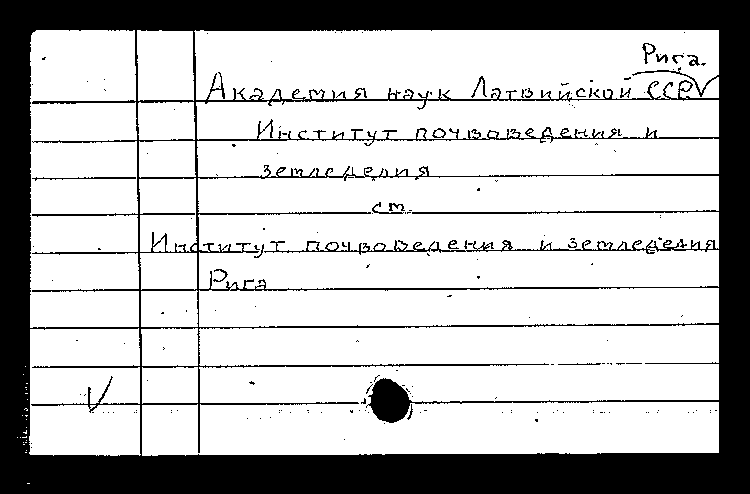 Рига.
Академия наук Латвийской ССР
Институт почвоведения и
земледелия
см.
Институт почвоведения и земледелия
Рига